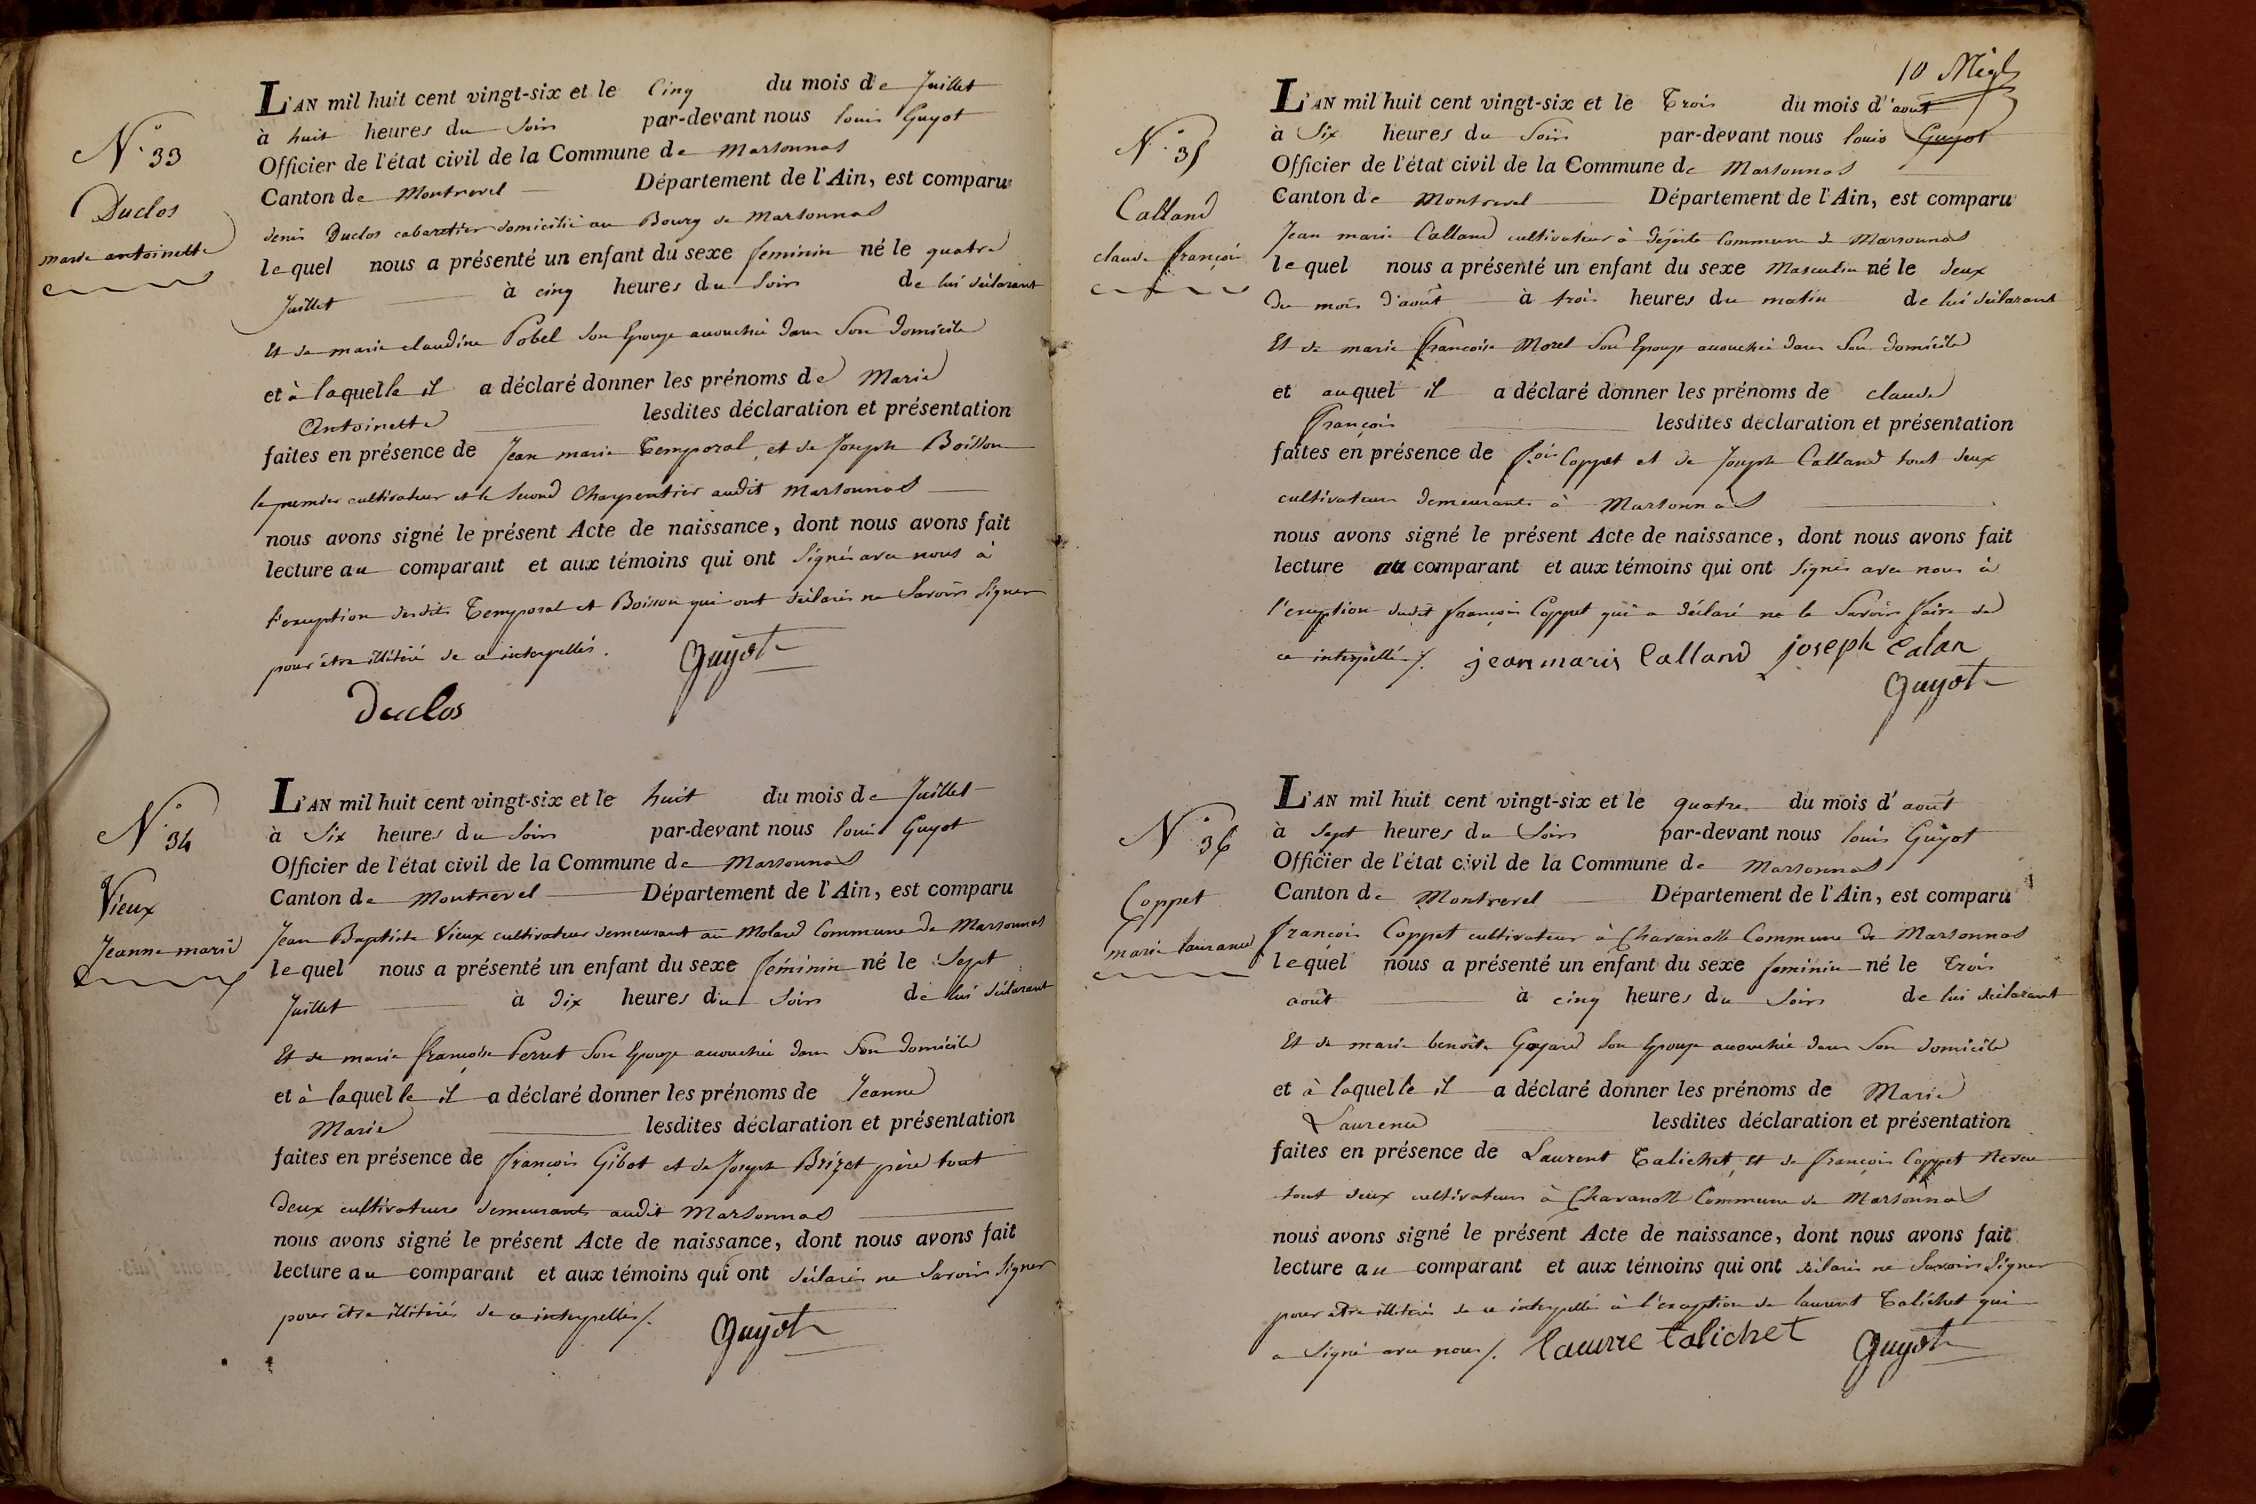 N.° 33
Duclos
marie antoinette
L'AN mil huit cent vingt-six et le Cinq du mois de Juillet
à huit heures du Soir par-devant nous louis Guyot
Officier de l'état civil de la Commune de Marsonnas
Canton de Montrevel Département de l'Ain, est comparu
denis Duclos cabaretier domicilié au Bourg de Marsonnas
lequel nous a présenté un enfant du sexe feminin né le quatre
Juillet à cinq heures du Soir de lui déclarant
Et de marie claudine Pobel Son Epouse accouchée dans Son domicile
et à laquelle il a déclaré donner les prénoms de Marie
Antoinette lesdites déclaration et présentation
faites en présence de Jean marie Temporal, et de Joseph Boisson
le premier cultivateur et le Second Charpentier audit Marsonnas
nous avons signé le présent Acte de naissance, dont nous avons fait
lecture au comparant et aux témoins qui ont Signés avec nous à
l'exception desdits Temporal et Boisson qui ont déclarés ne Savoir Signer
pour être illitéré de ce interpellés.
Guyot
Duclos
N.° 34
Vieux
Jeanne marie
L'AN mil huit cent vingt-six et le huit du mois de Juillet
à Six heures du Soir par-devant nous louis Guyot
Officier de l'état civil de la Commune de Marsonnas
Canton de Montrevel Département de l'Ain, est comparu
Jean Baptiste Vieux cultivateur demeurant au Molard Commune de Marsonnas
lequel nous a présenté un enfant du sexe féminin né le Sept
Juillet à dix heures du Soir de lui déclarant
Et de marie françoise Perret Son Epouse accouchée dans Son domicile
et à laquelle il a déclaré donner les prénoms de Jeanne
Marie lesdites déclaration et présentation
faites en présence de françois Gibot et de Joseph Brizet père tout
deux cultivateurs demeurants audit Marsonnas
nous avons signé le présent Acte de naissance, dont nous avons fait
lecture au comparant et aux témoins qui ont déclarés ne Savoir Signer
pour être illitérés de ce interpellés/.
Guyot
10
N.° 35
Calland
claude françois
L'AN mil huit cent vingt-six et le Trois du mois d'août
à Six heures du Soir par-devant nous louis Guyot
Officier de l'état civil de la Commune de Marsonnas
Canton de Montrevel Département de l'Ain, est comparu
Jean marie Calland cultivateur à Commune de Marsonnas
lequel nous a présenté un enfant du sexe Masculin né le deux
du mois d'août à trois heures du matin de lui déclarant
Et de marie françoise Morel Son Epouse accouchée dans Son domicile
et auquel il a déclaré donner les prénoms de claude
françois lesdites déclaration et présentation
faites en présence de f.ois Coppet et de Joseph Calland tout deux
cultivateurs demeurants à Marsonnas
nous avons signé le présent Acte de naissance, dont nous avons fait
lecture au comparant et aux témoins qui ont Signés avec nous à
l'exception dudit françois Coppet qui a déclaré ne le Savoir faire de
ce interpellé/. jeanmarie Calland joseph Calan
Guyot
N.° 36
Coppet
marie laurance
L'AN mil huit cent vingt-six et le quatre du mois d'août
à Sept heures du Soir par-devant nous louis Guyot
Officier de l'état civil de la Commune de Marsonnas
Canton de Montrevel Département de l'Ain, est comparu
françois Coppet cultivateur à Charanolle Commune de Marsonnas
lequel nous a présenté un enfant du sexe feminin né le Trois
août à cinq heures du Soir de lui déclarant
Et de marie benoite Goyard Son Epouse accouchée dans Son domicile
et à laquelle il a déclaré donner les prénoms de Marie
Laurence lesdites déclaration et présentation
faites en présence de Laurent Talichet, et de françois Coppet Neveu
tout deux cultivateurs à Charanolle Commune de Marsonnas
nous avons signé le présent Acte de naissance, dont nous avons fait
lecture au comparant et aux témoins qui ont déclarés ne Savoir Signer
pour être illitérés de ce interpellé à l'exception de laurent Talichet qui
a Signé avec nous/. laurre talichet Guyot